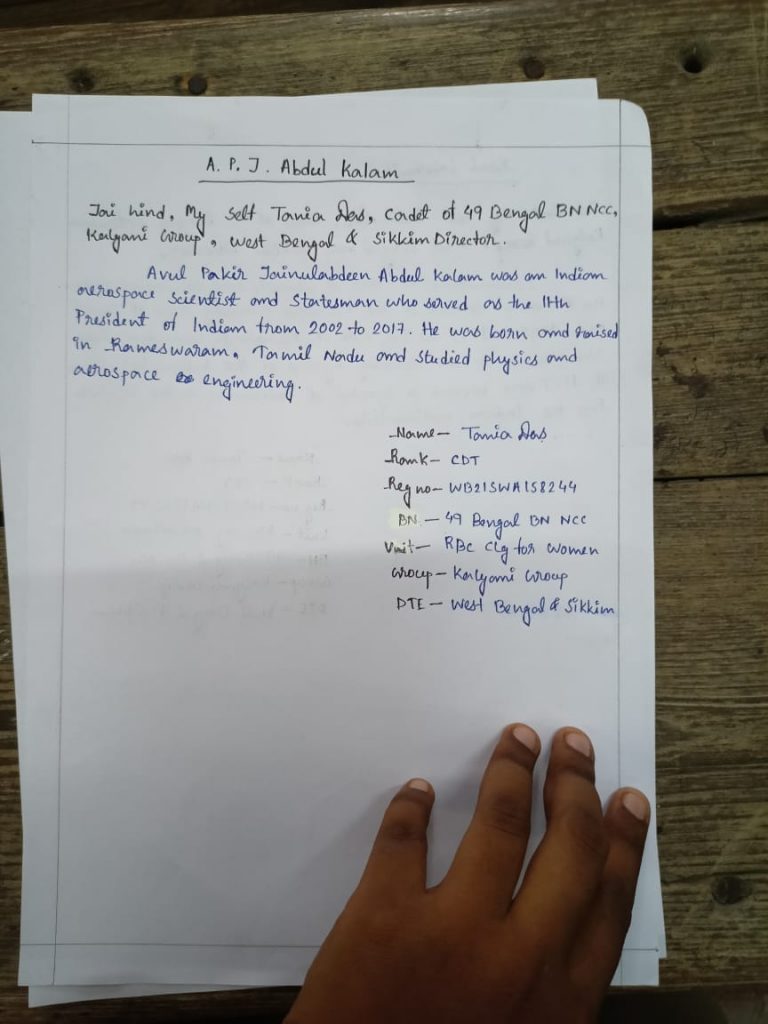 A. P. J. Abdul Kalam
Jai hind, My self Tania Das, Cadet of 49 Bengal BN NCC,
Kalyani Group, West Bengal & Sikkim Director.
Avul Pakir Jainulabdeen Abdul Kalam was an Indian
aerospace scientist and Statesman who served as the 11th
President of Indian from 2002 to 2017. He was born and raised
in Rameswaram, Tamil Nadu and studied physics and
aerospace engineering.
Name - Tania Das
Rank - CDT
Reg no - WB21SWA158244
BN - 49 Bengal BN NCC
Unit - RBC Clg for Women
Group - Kalyani Group
DTE - West Bengal & Sikkim